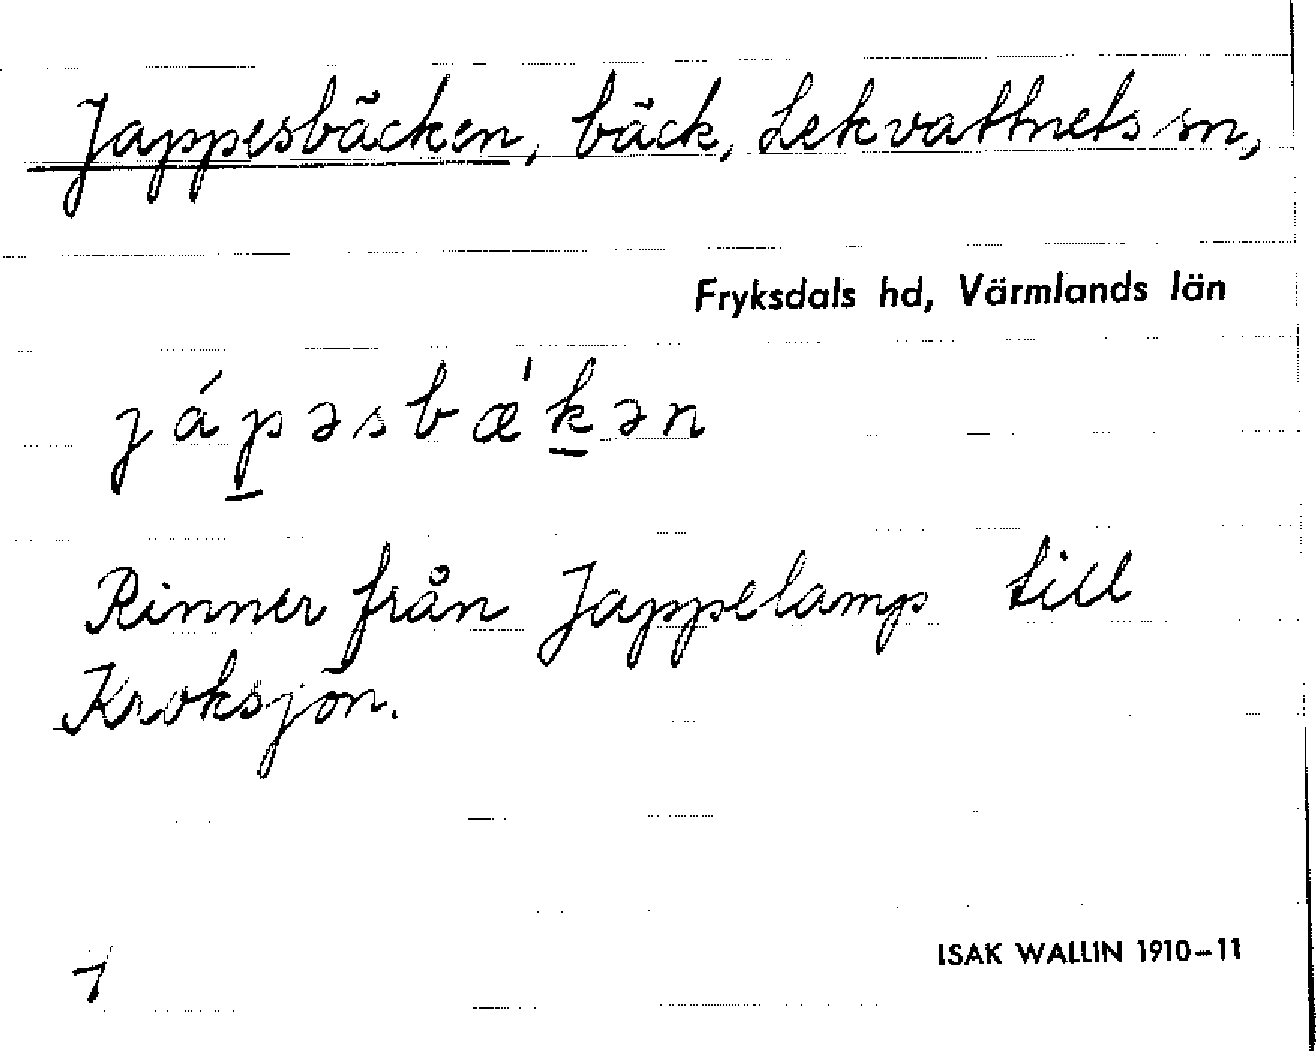 Jappesbäcken, bäck, Lekvattnets sn,
Fryksdals hd, Värmlands län
jáp̲əsbæ̍k̲ən
Rinner från Jappelamp till
Kroksjön.
ISAK WALLIN 1910–11